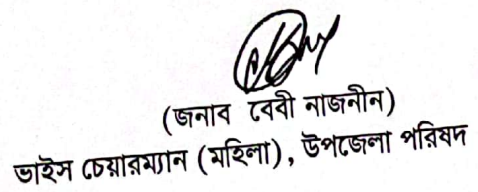 (জনাব বেবী নাজনীন)
ভাইস চেয়ারম্যান (মহিলা), উপজেলা পরিষদ